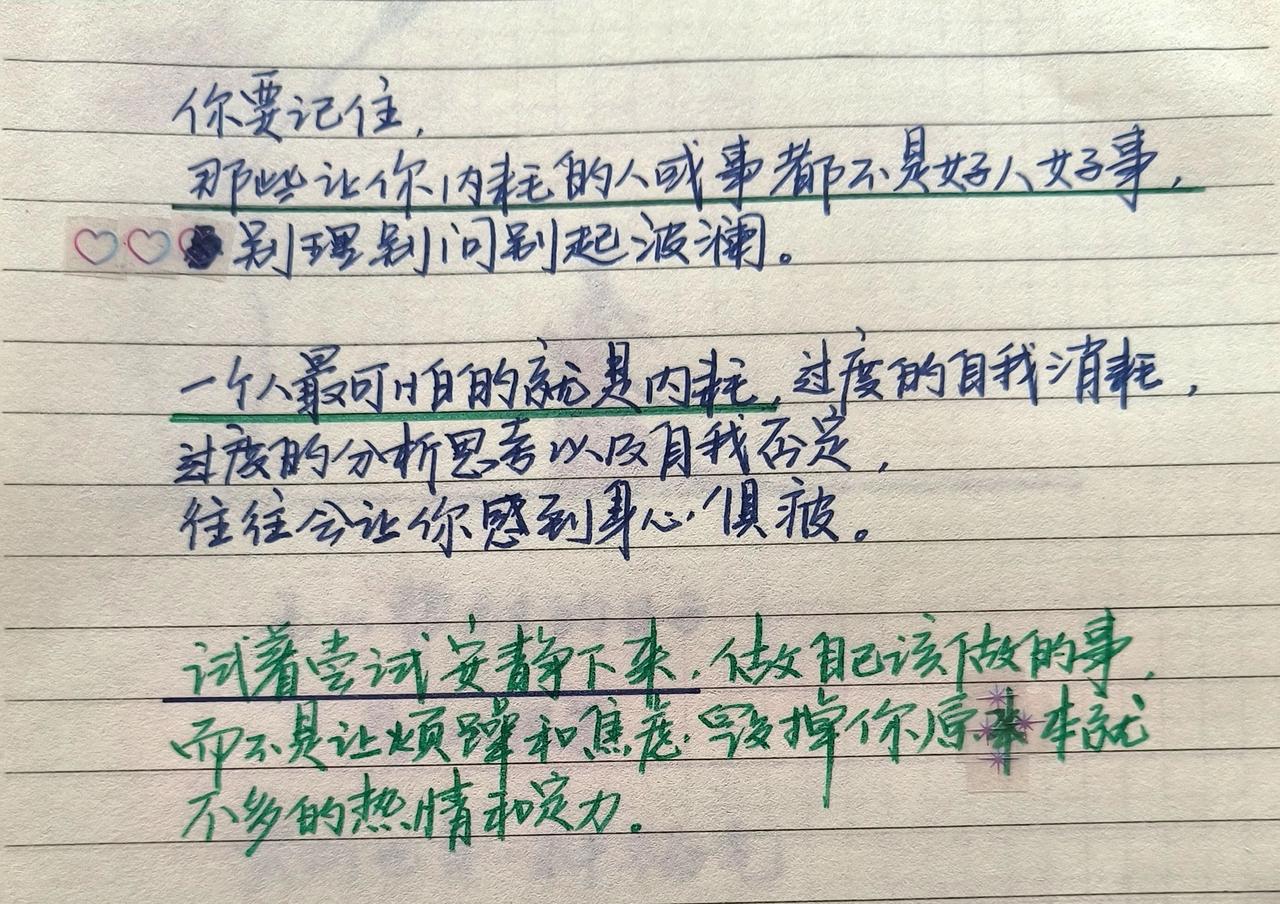 你要记住，
那些让你内耗的人或事都不是好人好事，
别理别问别起波澜。
一个人最可怕的就是内耗，过度的自我消耗，
过度的分析思考以及自我否定，
往往会让你感到身心俱疲。
试着尝试安静下来，做自己该做的事，
而不是让烦躁和焦虑，毁掉你原本就
不多的热情和定力。